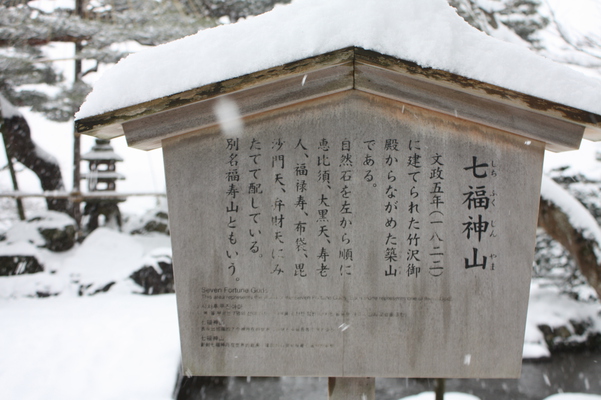 七福神山
しち ふく じん やま
文政五年(一八二二)
に建てられた竹沢御
殿からながめた築山
である。
自然石を左から順に
恵比須、大黒天、寿老
人、福禄寿、布袋、毘
沙門天、弁財天にみ
たてて配している。
別名福寿山ともいう。
Seven Fortune God
七福神山